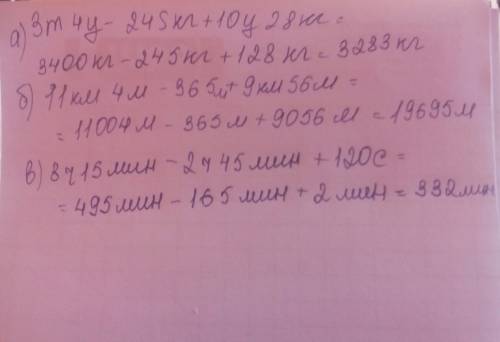 а) 3т 4ц - 245кг + 10ц 28кг =
3400кг - 245кг + 128кг = 3283кг
б) 11км 4м - 365м + 9км 56м =
= 11004м - 365м + 9056м = 19695м
в) 8ч 15мин - 2ч 45мин + 120с =
= 495мин - 165мин + 2мин = 332мин